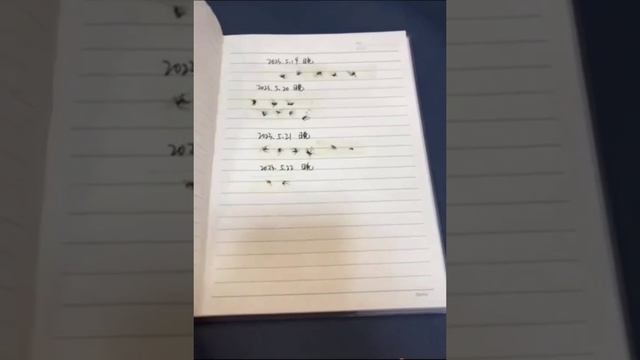 2023.5.19 晚
2023.5.20 晚
2023.5.21 晚
2023.5.22 晚